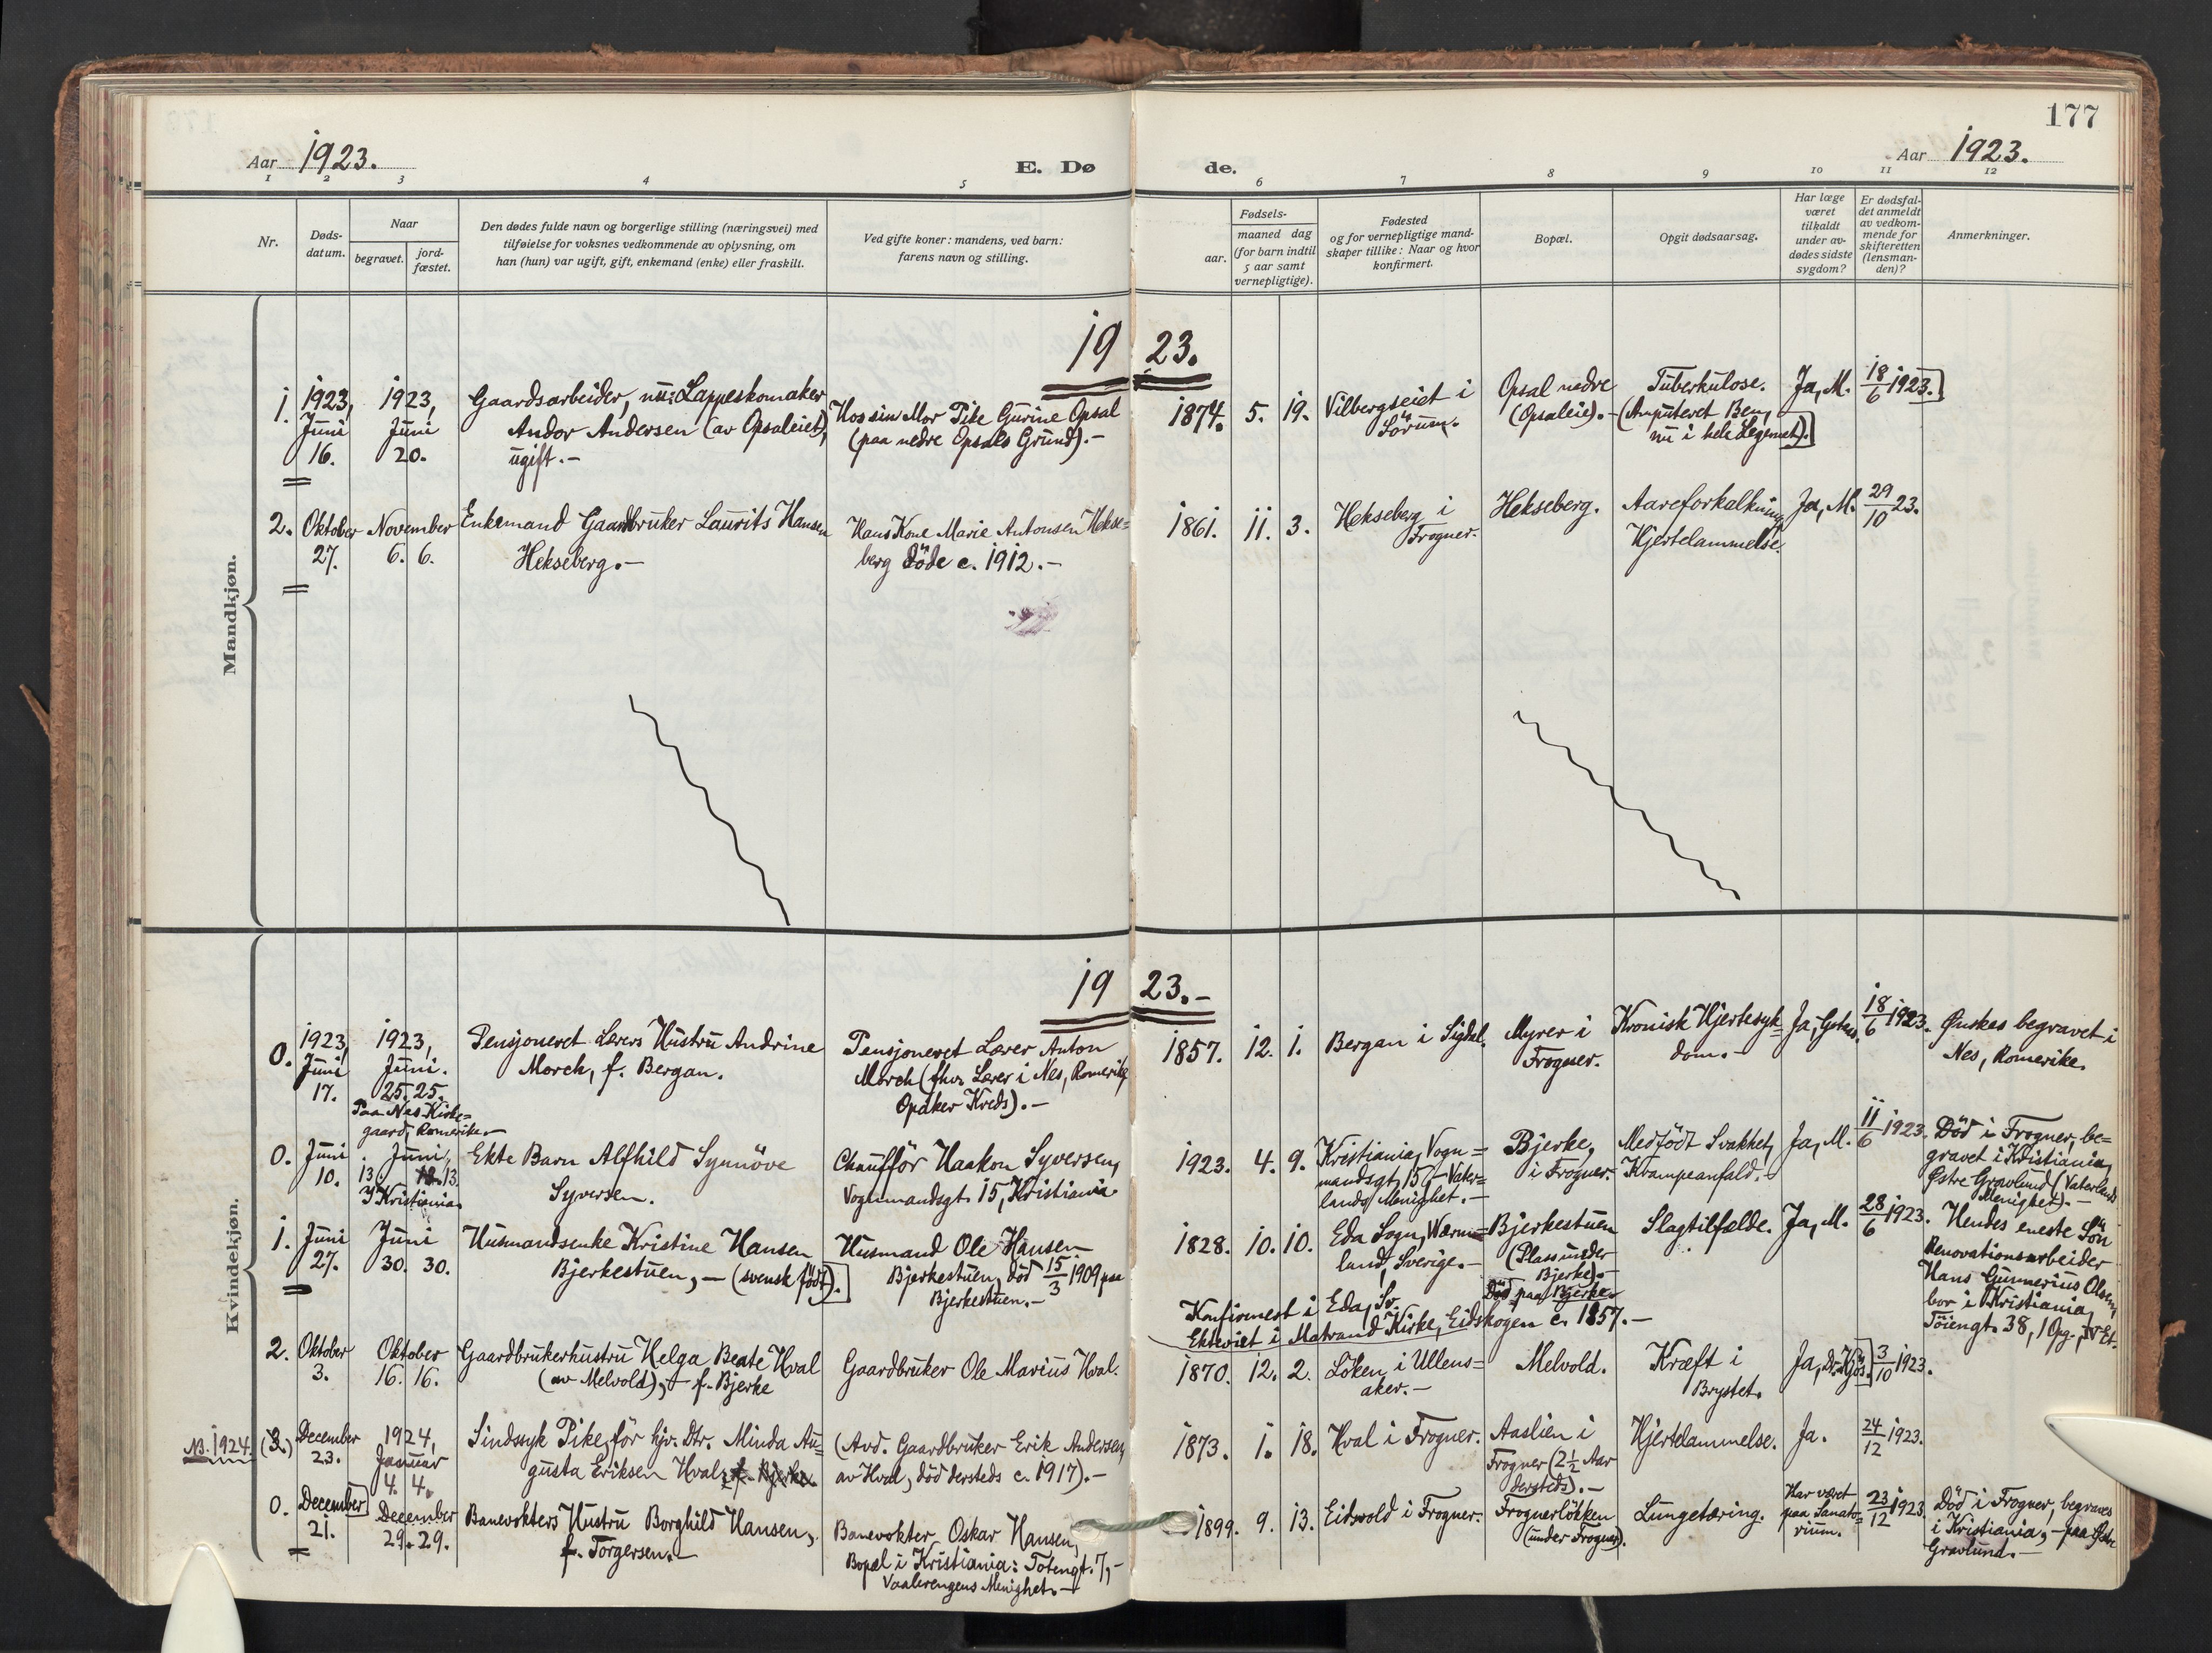 177
Aar 1923.
E. Dø de.
Aar 1923.
1 2 3 4 5 6 7 8 9 10 11 12
Nr.
Døds-
datum.
Naar
begravet.
jord-
fæstet.
Den dødes fulde navn og borgerlige stilling (næringsvei) med
tilføielse for voksnes vedkommende av oplysning, om
han (hun) var ugift, gift, enkemand (enke) eller fraskilt.
Ved gifte koner: mandens, ved barn:
farens navn og stilling.
Fødsels-
aar.
maaned dag
(for barn indtil
5 aar samt
vernepligtige).
Fødested
og for vernepligtige mand-
skaper tillike: Naar og hvor
konfirmert.
Bopæl.
Opgit dødsaarsag.
Har læge
været
tilkaldt
under av-
dødes sidste
sygdom?
Er dødsfal-
det anmeldt
av vedkom-
mende for
skifteretten
(lensman-
den)?
Anmerkninger.
Mandkjøn.
1923.
1.
1923,
Juni
16.
1923,
Juni
20.
Gaardsarbeider, nu: Lappeskomaker
Andor Andersen (av Opsaleiet),
ugift.-
Hos sin Mor Pike Gurine Opsal
(paa nedre Opsals Grund).-
1874. 5. 19.
Vilbergseiet i
Sörum.
Opsal nedre
(Opsaleie).-
Tuberkulose.
(Amputeret Ben,
nu i hele Legemet).
Ja, M.
18/6 1923.
2.
Oktober
27.
November
6. 6.
Enkemand Gaardbruker Laurits Hansen
Hekseberg.-
Hans Kone Marie Antonsen Hekse=
berg döde c. 1912.-
1861. 11. 3.
Hekseberg i
Frogner.
Hekseberg.
Aareforkalkning,
Hjertelammelse.
Ja, M.
29/10 23.
Kvindekjøn.
1923.-
0.
1923,
Juni
17.
1923,
Juni.
25. 25.
Paa Nes Kirke=
gaard, Romerike.
Pensjoneret Lærers Hustru Andrine
Morch, f. Bergan.
Pensjoneret Lærer Anton
Morch (fhv. Lærer i Nes, Romerike,
Opaker Kreds).-
1857. 12. 1.
Bergan i Sigdal.
Myrer i
Frogner.
Kronisk Hjertesyk=
dom.-
Ja,
18/6 1923.
Ønskes begravet i
Nes, Romerike.
0.
Juni
10.
Juni,
13. 13.
I Kristiania.
Ekte Barn Alfhild Synnöve
Syversen.
Chauffør Haakon Syversen,
Vognmandsgt. 15, Kristiania.
1923. 4. 9.
Kristiania, Vogn=
mandsgt. 15,- Vater=
lands Menighet.-
Bjerke,
i Frogner.
Medfödt Svakhet,
Krampeanfald.-
Ja, M.
11/6 1923.
Död i Frogner, be=
gravet i Kristiania,
Østre Gravlund (Vaterlands
Menighet).-
1.
Juni
27.
Juni
30. 30.
Husmandsenke Kristine Hansen
Bjerkestuen,- (svensk födt).
Husmand Ole Hansen
Bjerkestuen, död 15/3 1909 paa
Bjerkestuen.-
1828. 10. 10.
Eda Sogn, Værm=
land, Sverige.-
Bjerkestuen
(Plass under
Bjerke).-
Död paa Bjerke.
Slagtilfælde.
Ja, M.
28/6 1923.
Hendes eneste Sön
Renovationsarbeider
Hans Gunnerius Olsen,
bor i Kristiania,
Töiengt. 38, 1 Opg., IV Et.
Konfirmert i Eda, Sv.
Ekteviet i Matrand Kirke, Eidskogen c. 1857.-
2.
Oktober
3.
Oktober
16. 16.
Gaardbrukerhustru Helga Beate Hval
(av Melvold),- f. Bjerke
Gaardbruker Ole Marius Hval.
1870. 12. 2.
Löken i Ullens=
aker.-
Melvold.
Kræft i
Brystet.
Ja, Dr. Kjös.
3/10 1923.
NB. 1924.
(3.)
December
23.
1924,
Januar
4. 4.
Sindssyk Pike, för hjv. Dtr. Minda Au=
gusta Eriksen Hval, f. Bjerke.
(Avd. Gaardbruker Erik Andersen,
av Hval, död dersteds c. 1917).-
1873. 1. 18.
Hval i Frogner.
Aaslien i
Frogner (2½ Aar
dersteds).-
Hjertelammelse.
Ja.
24/12 1923.
0.
December
21.
December
29. 29.
Banevokters Hustru Borghild Hansen,
f. Torgersen.-
Banevokter Oskar Hansen,
Bopæl i Kristiania: Totengt. 7,-
Vaalerengens Menighet.-
1899. 9. 13.
Eidsvold i Frogner.
Frognerlökken
(under Frogner).
Lungetæring.
Har været
paa Sanato=
rium.
23/12 1923.
Död i Frogner, begraves
i Kristiania,- paa Østre
Gravlund.-